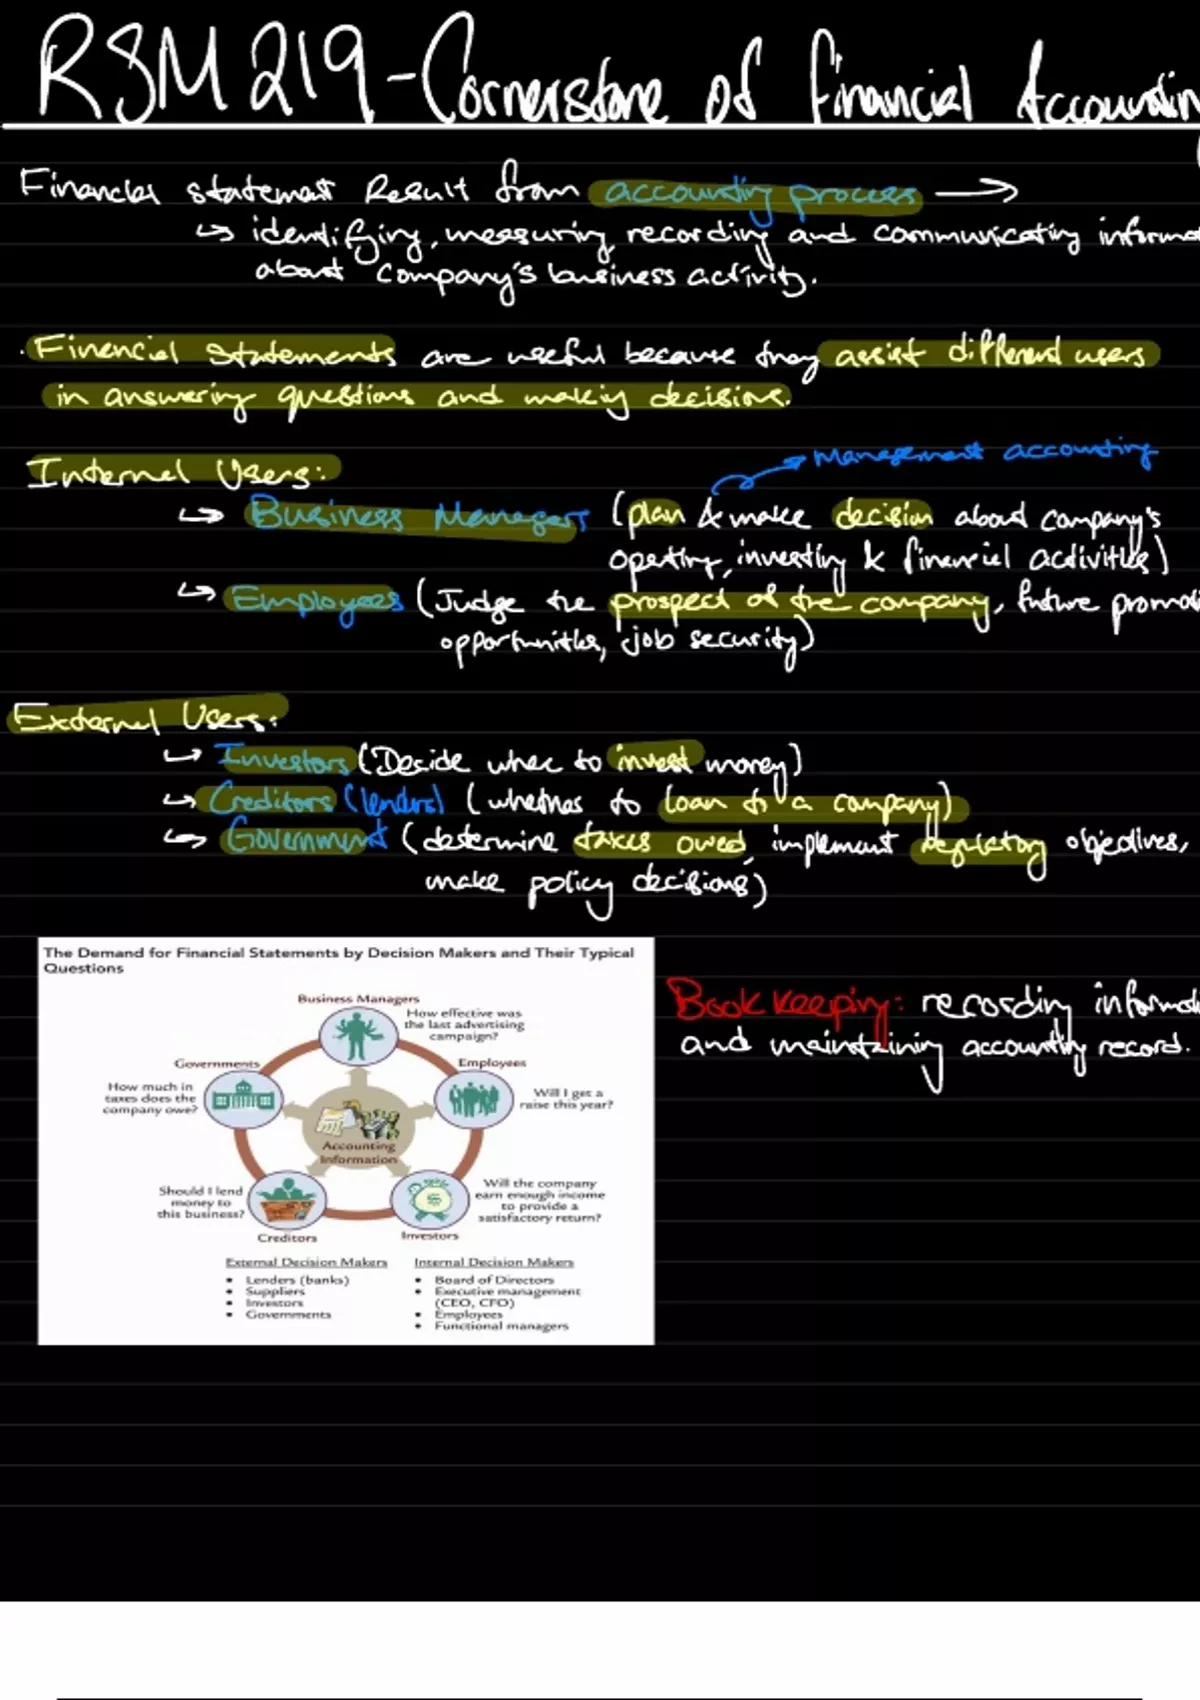 RSM 219 - Cornerstone of Financial Accountin
Financial statement Result from accounting process →
↳ identifying, measuring, recording and communicating informa
about company's business activity.
· Financial Statements are useful because they assist different users
in answering questions and making decisions.
Management accounting
Internal Users:
↳ Business Managers (plan & make decision about company's
operating, investing & financial activities)
↳ Employees (Judge the prospect of the company, future promoti
opportunities, job security)
External Users:
↳ Investors (Decide where to invest money)
↳ Creditors (lenders) (whether to loan to a company)
↳ Government (determine taxes owed, implement regulatory objectives,
make policy decisions)
The Demand for Financial Statements by Decision Makers and Their Typical
Questions
Business Managers
How effective was
the last advertising
campaign?
Governments
How much in
taxes does the
company owe?
Employees
Will I get a
raise this year?
Accounting
Information
Should I lend
money to
this business?
Creditors
Will the company
earn enough income
to provide a
satisfactory return?
Investors
External Decision Makers
• Lenders (banks)
• Suppliers
• Investors
• Governments
Internal Decision Makers
• Board of Directors
• Executive management
(CEO, CFO)
• Employees
• Functional managers
Book keeping: recording informati
and maintaining accounting record.